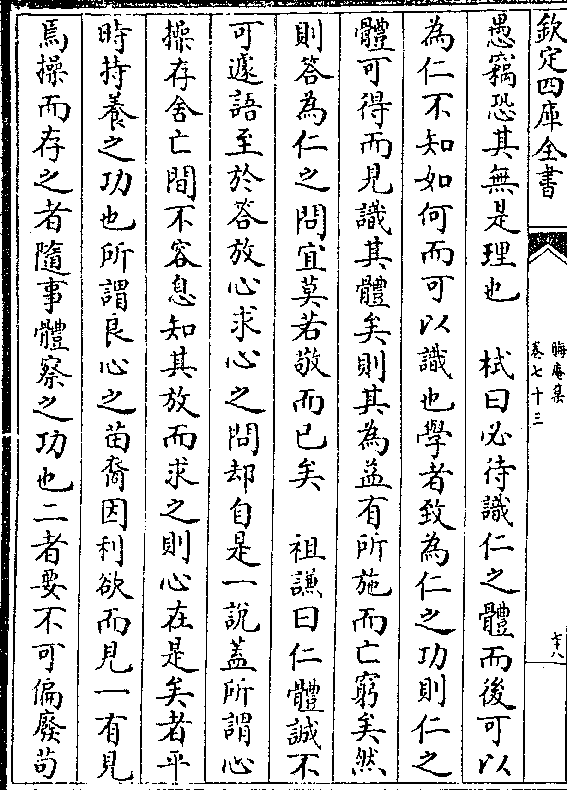 欽定四庫全書
晦庵集
卷七十三
七十八
愚竊恐其無是理也　栻曰必待識仁之體而後可以
為仁不知如何而可以識也學者致為仁之功則仁之
體可得而見識其體矣則其為益有所施而亡窮矣然
則答為仁之問宜莫若敬而已矣　祖謙曰仁體誠不
可遽語至於答放心求心之問却自是一說蓋所謂心
操存舍亡間不容息知其放而求之則心在是矣者平
時持養之功也所謂良心之苗裔因利欲而見一有見
焉操而存之者隨事體察之功也二者要不可偏廢茍